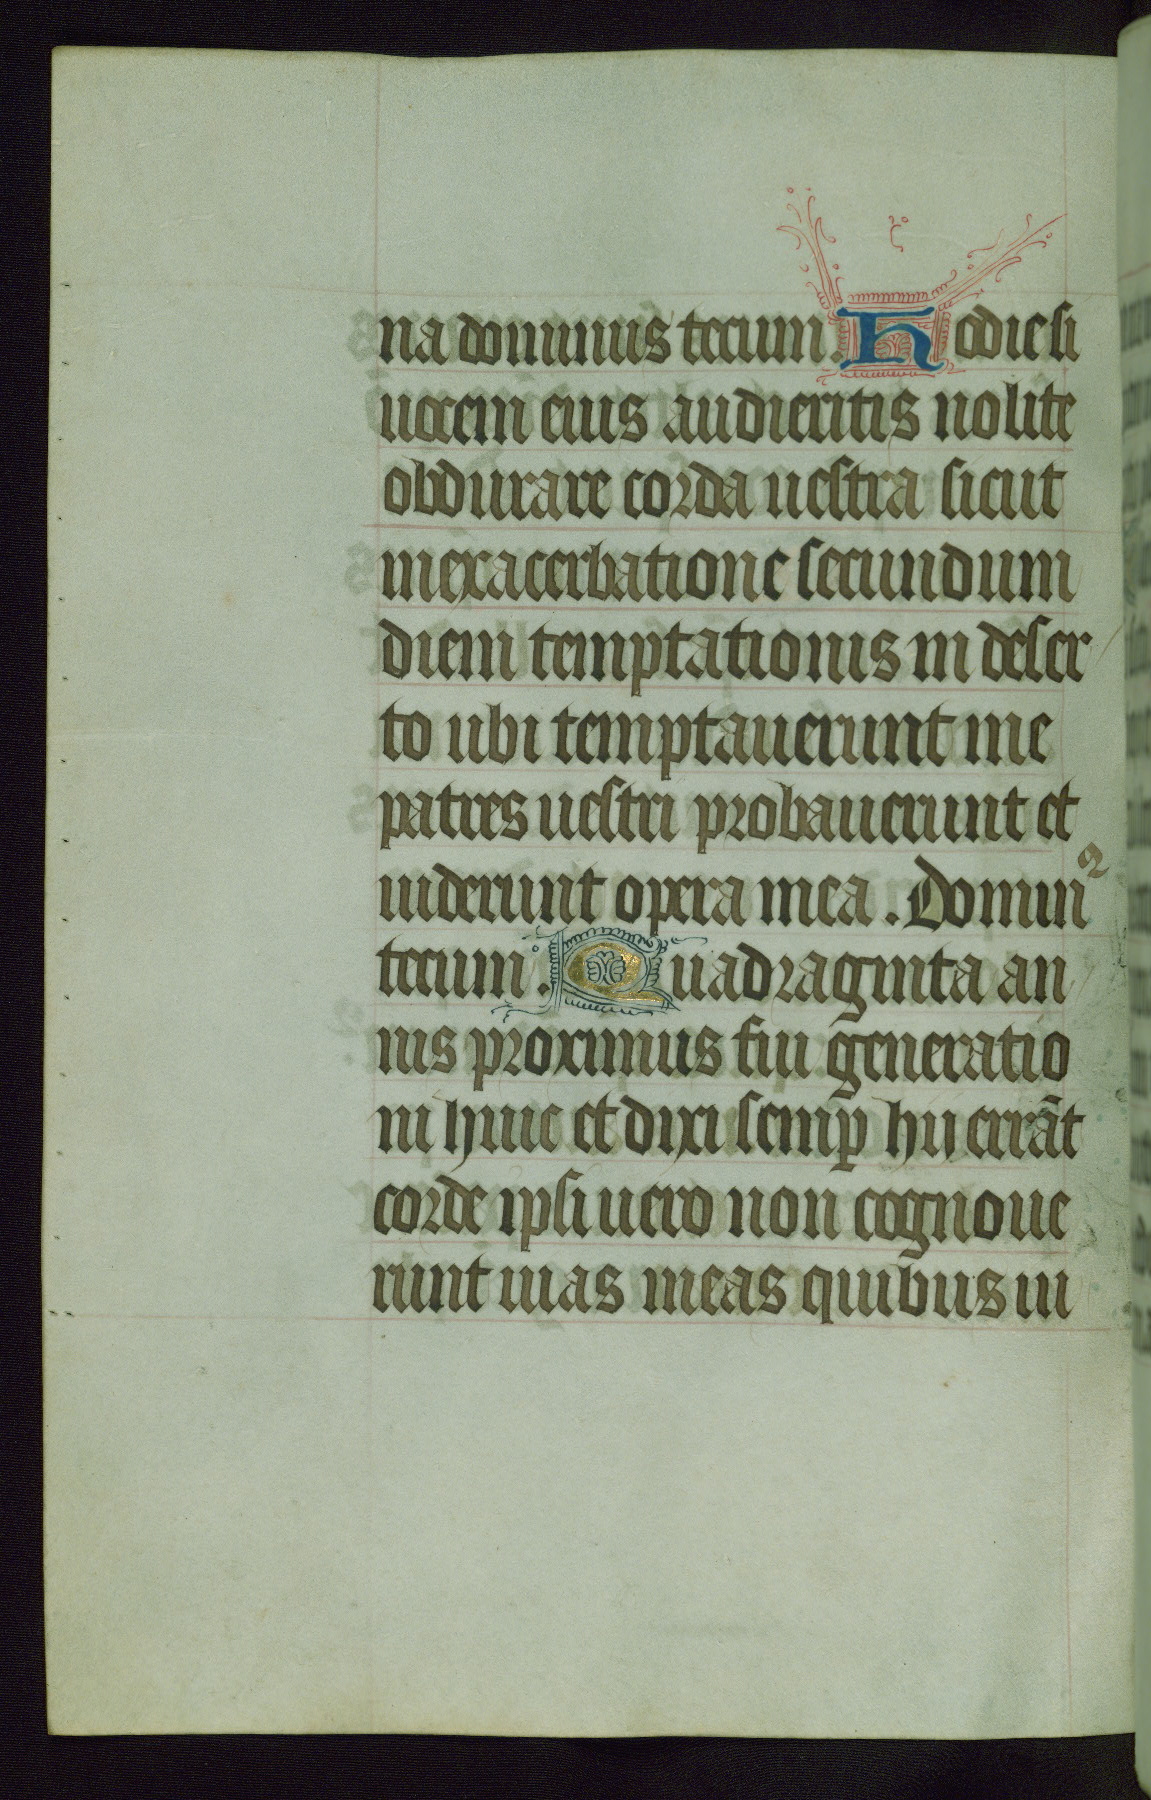 na dominus tecum. Hodie si
uocem eius audieritis nolite
obdurare corda uestra sicut
in exacerbatione secundum
diem temptationis in deser
to ubi temptauerunt me
patres uestri probauerunt et
uiderunt opera mea. Domin᷒
tecum. Quadraginta an
nis proximus fui generatio
ni huic et dixi semꝑ hij errāt
corde ipsi uero non cognoue
runt uias meas quibus iu